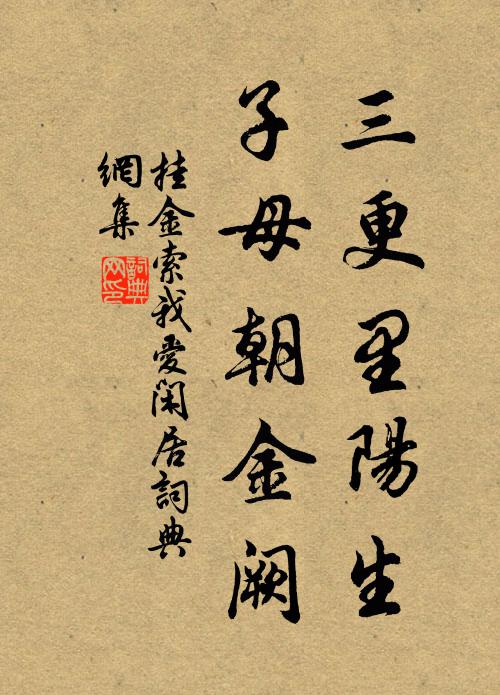 三更里陽生
子母朝金闕
挂金索我愛閑居詞典
網集
詞典
网印